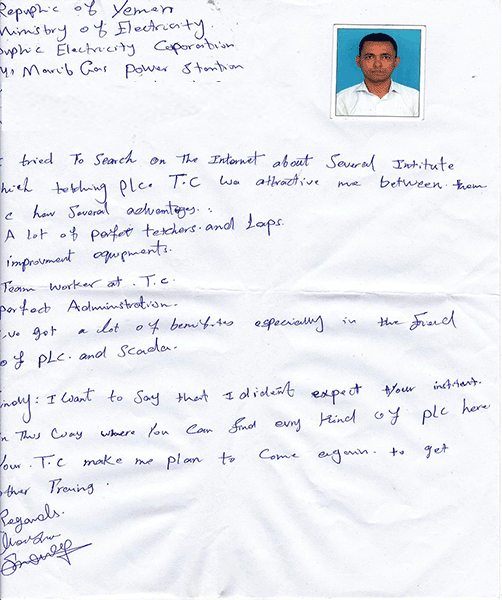 Repuplic of Yemen
Ministry of Electricity
uplic Electricity Corporation
Marib Gas Power Stantion
I tried To Search on The Internet about Several Institute
hich tetching PLC. T.C wa attractive me between them
c hav Several advantages.:
A lot of perfet tetchers and Laps.
improvment equpments.
Team worker at .T.C.
perfect Adminstration.
ve got a lot of benifites especially in the
of PLC. and Scada.
I want to Say that I dident expect your institut.
n This way where you can find evry kind of PLC here
Your .T.C make me plan to come again. to get
other Trening.
Regards.